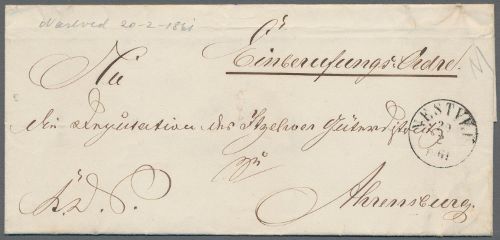 Nestved 20-2-1861
Einberufungs-Ordre.
An
die Deputation des Itzehoer Güterdistricts
zu
K. D. S.
Ahrensburg.
NESTVED
20
2
61